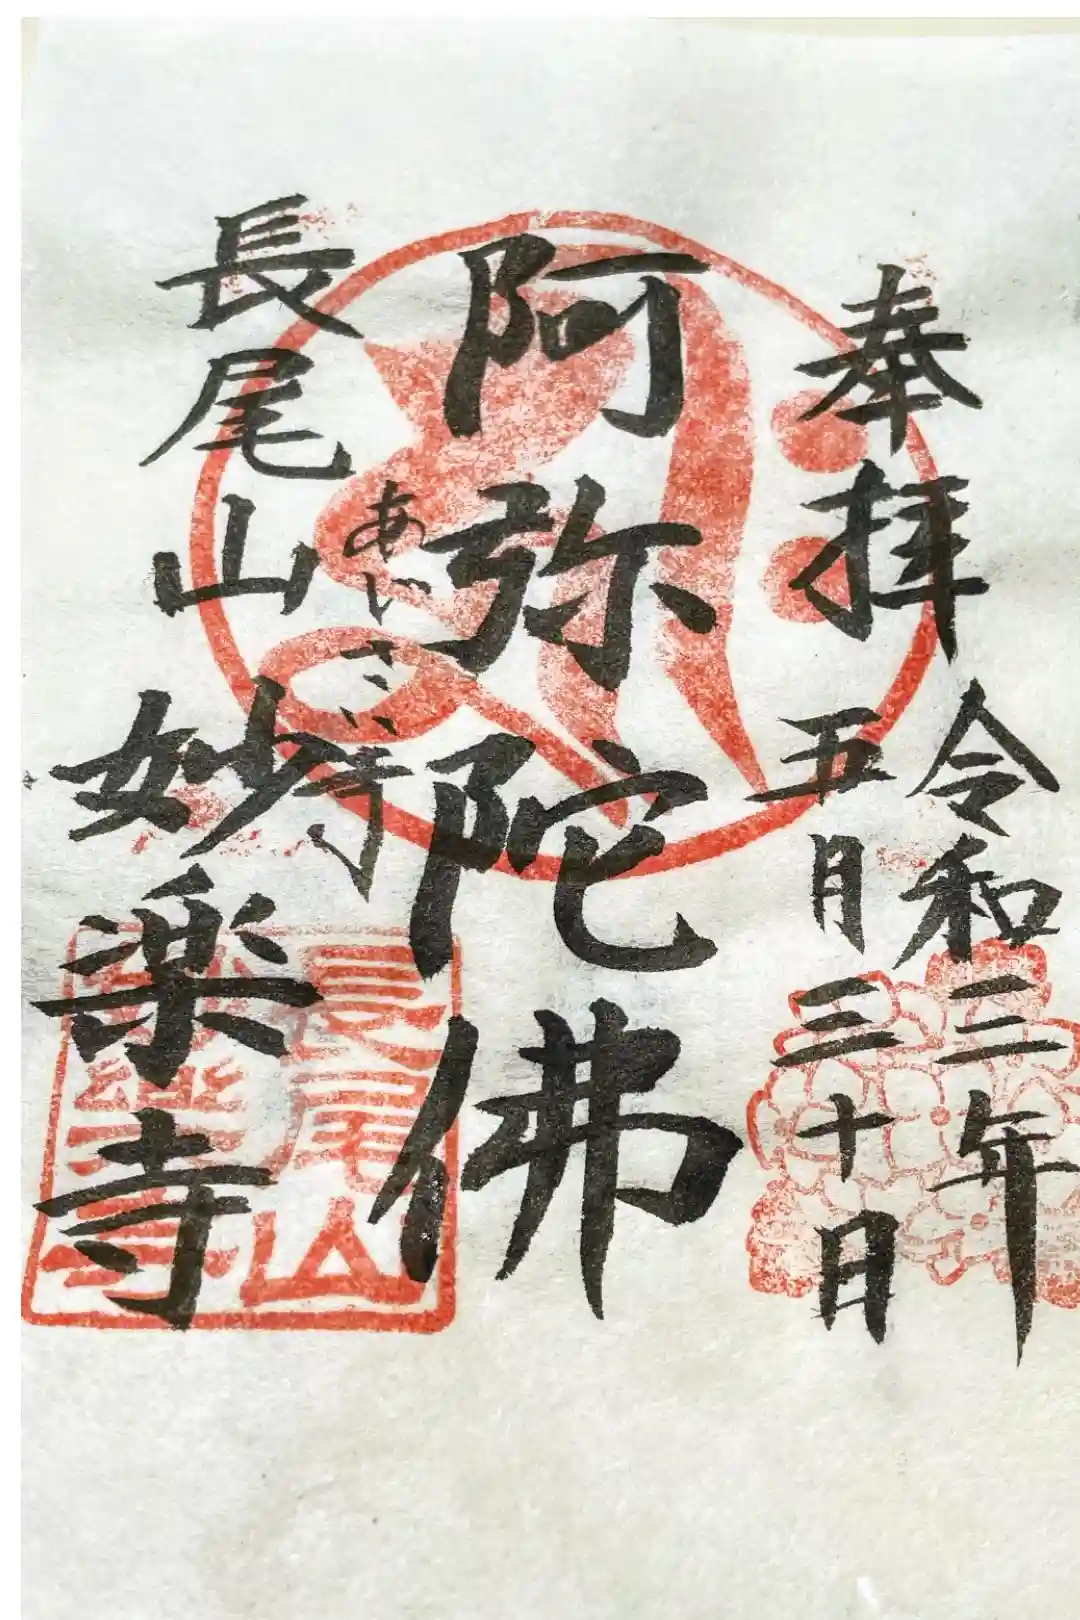 奉拝
令和二年
五月三十日
阿弥陀佛
あじさい寺
長尾山
妙楽寺
長尾山
妙楽寺